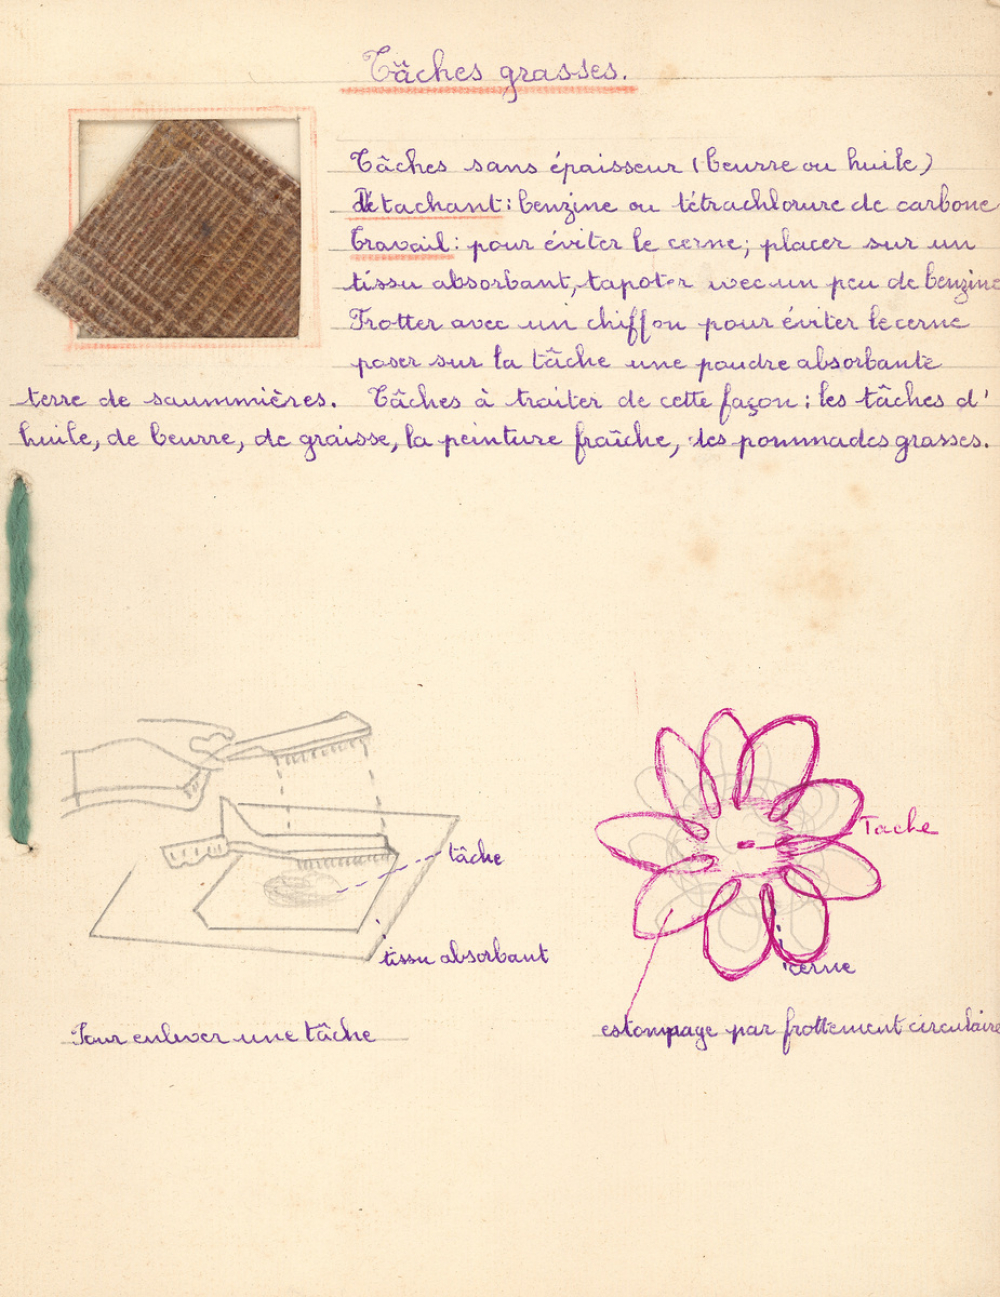 Tâches grasses.
Tâches sans épaisseur (beurre ou huile)
Détachant : benzine ou tétrachlorure de carbone
Travail : pour éviter le cerne; placer sur un
tissu absorbant, tapoter avec un peu de benzine
Frotter avec un chiffon pour éviter le cerne
poser sur la tâche une poudre absorbante
terre de saummières. Tâches à traiter de cette façon : les tâches d'
huile, de beurre, de graisse, la peinture fraîche, les pommades grasses.
tâche
tissu absorbant
Pour enlever une tâche
Tache
cerne
estompage par frottement circulaire